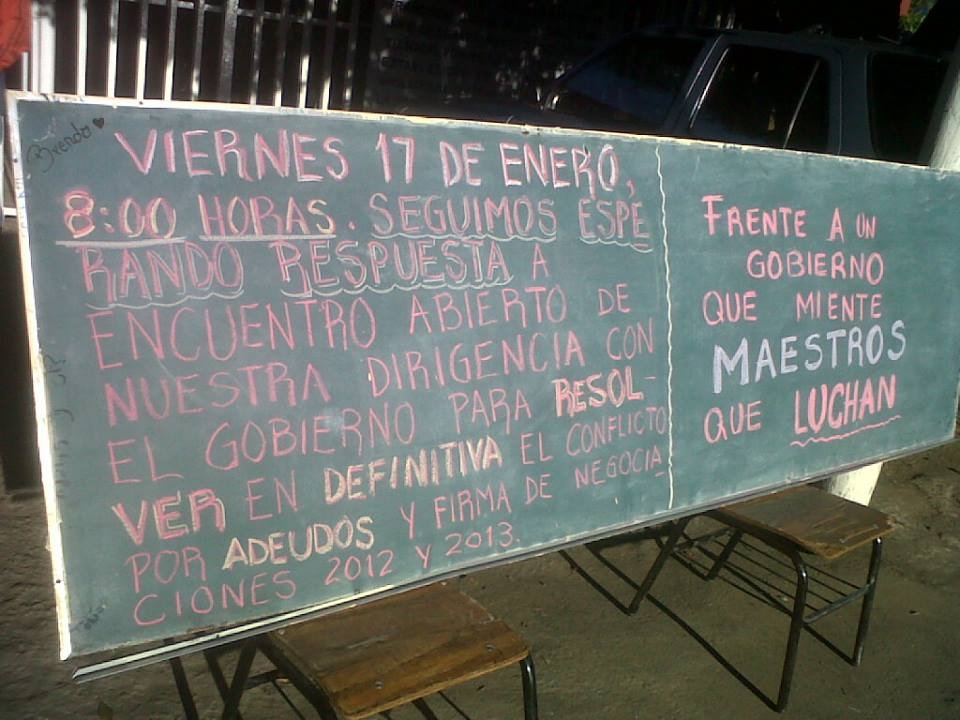 Brenda
VIERNES 17 DE ENERO,
8:00 HORAS. SEGUIMOS ESPE
RANDO RESPUESTA A
ENCUENTRO ABIERTO DE
NUESTRA DIRIGENCIA CON
EL GOBIERNO PARA RESOL-
VER EN DEFINITIVA EL CONFLICTO
POR ADEUDOS Y FIRMA DE NEGOCIA
CIONES 2012 Y 2013.
FRENTE A UN
GOBIERNO
QUE MIENTE
MAESTROS
QUE LUCHAN